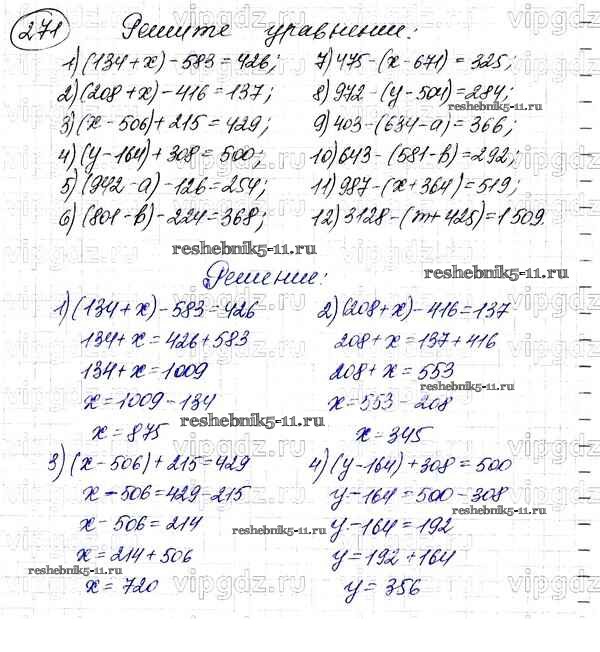 271 Решите уравнение:
1) (134+x)-583=426; 7) 475-(x-671)=325;
2) (208+x)-416=137; 8) 972-(y-504)=284;
3) (x-506)+215=429; 9) 403-(634-a)=366;
4) (y-164)+308=500; 10) 643-(581-b)=292;
5) (942-a)-126=254; 11) 987-(x+364)=519;
6) (801-b)-224=368; 12) 3128-(m+425)=1509.
Решение:
1) (134+x)-583=426
134+x=426+583
134+x=1009
x=1009-134
x=875
2) (208+x)-416=137
208+x=137+416
208+x=553
x=553-208
x=345
3) (x-506)+215=429
x-506=429-215
x-506=214
x=214+506
x=720
4) (y-164)+308=500
y-164=500-308
y-164=192
y=192+164
y=356
reshebnik5-11.ru
reshebnik5-11.ru
reshebnik5-11.ru
reshebnik5-11.ru
reshebnik5-11.ru
reshebnik5-11.ru
reshebnik5-11.ru
reshebnik5-11.ru
vipgdz.ru